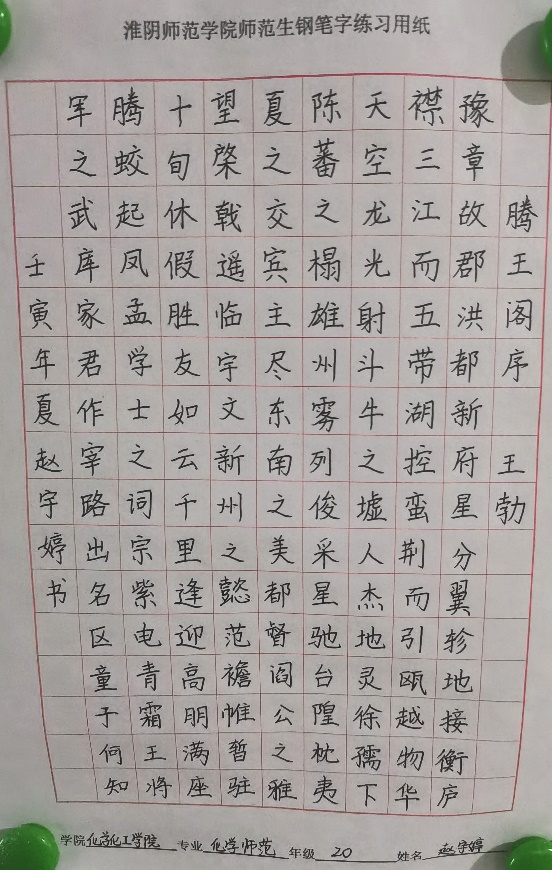 淮阴师范学院师范生钢笔字练习用纸
腾王阁序 王勃
豫章故郡洪都新府星分翼轸地接衡庐
襟三江而五带湖控蛮荆而引瓯越物华
天空龙光射斗牛之墟人杰地灵徐孺下
陈蕃之榻雄州雾列俊采星驰台隍枕夷
夏之交宾主尽东南之美都督阎公之雅
望棨戟遥临宇文新州之懿范襜帷暂驻
十旬休假胜友如云千里逢迎高朋满座
腾蛟起凤孟学士之词宗紫电青霜王将
军之武库家君作宰路出名区童子何知
壬寅年夏赵宇婷书
学院 化学化工学院 专业 化学师范 年级 20 姓名 赵宇婷